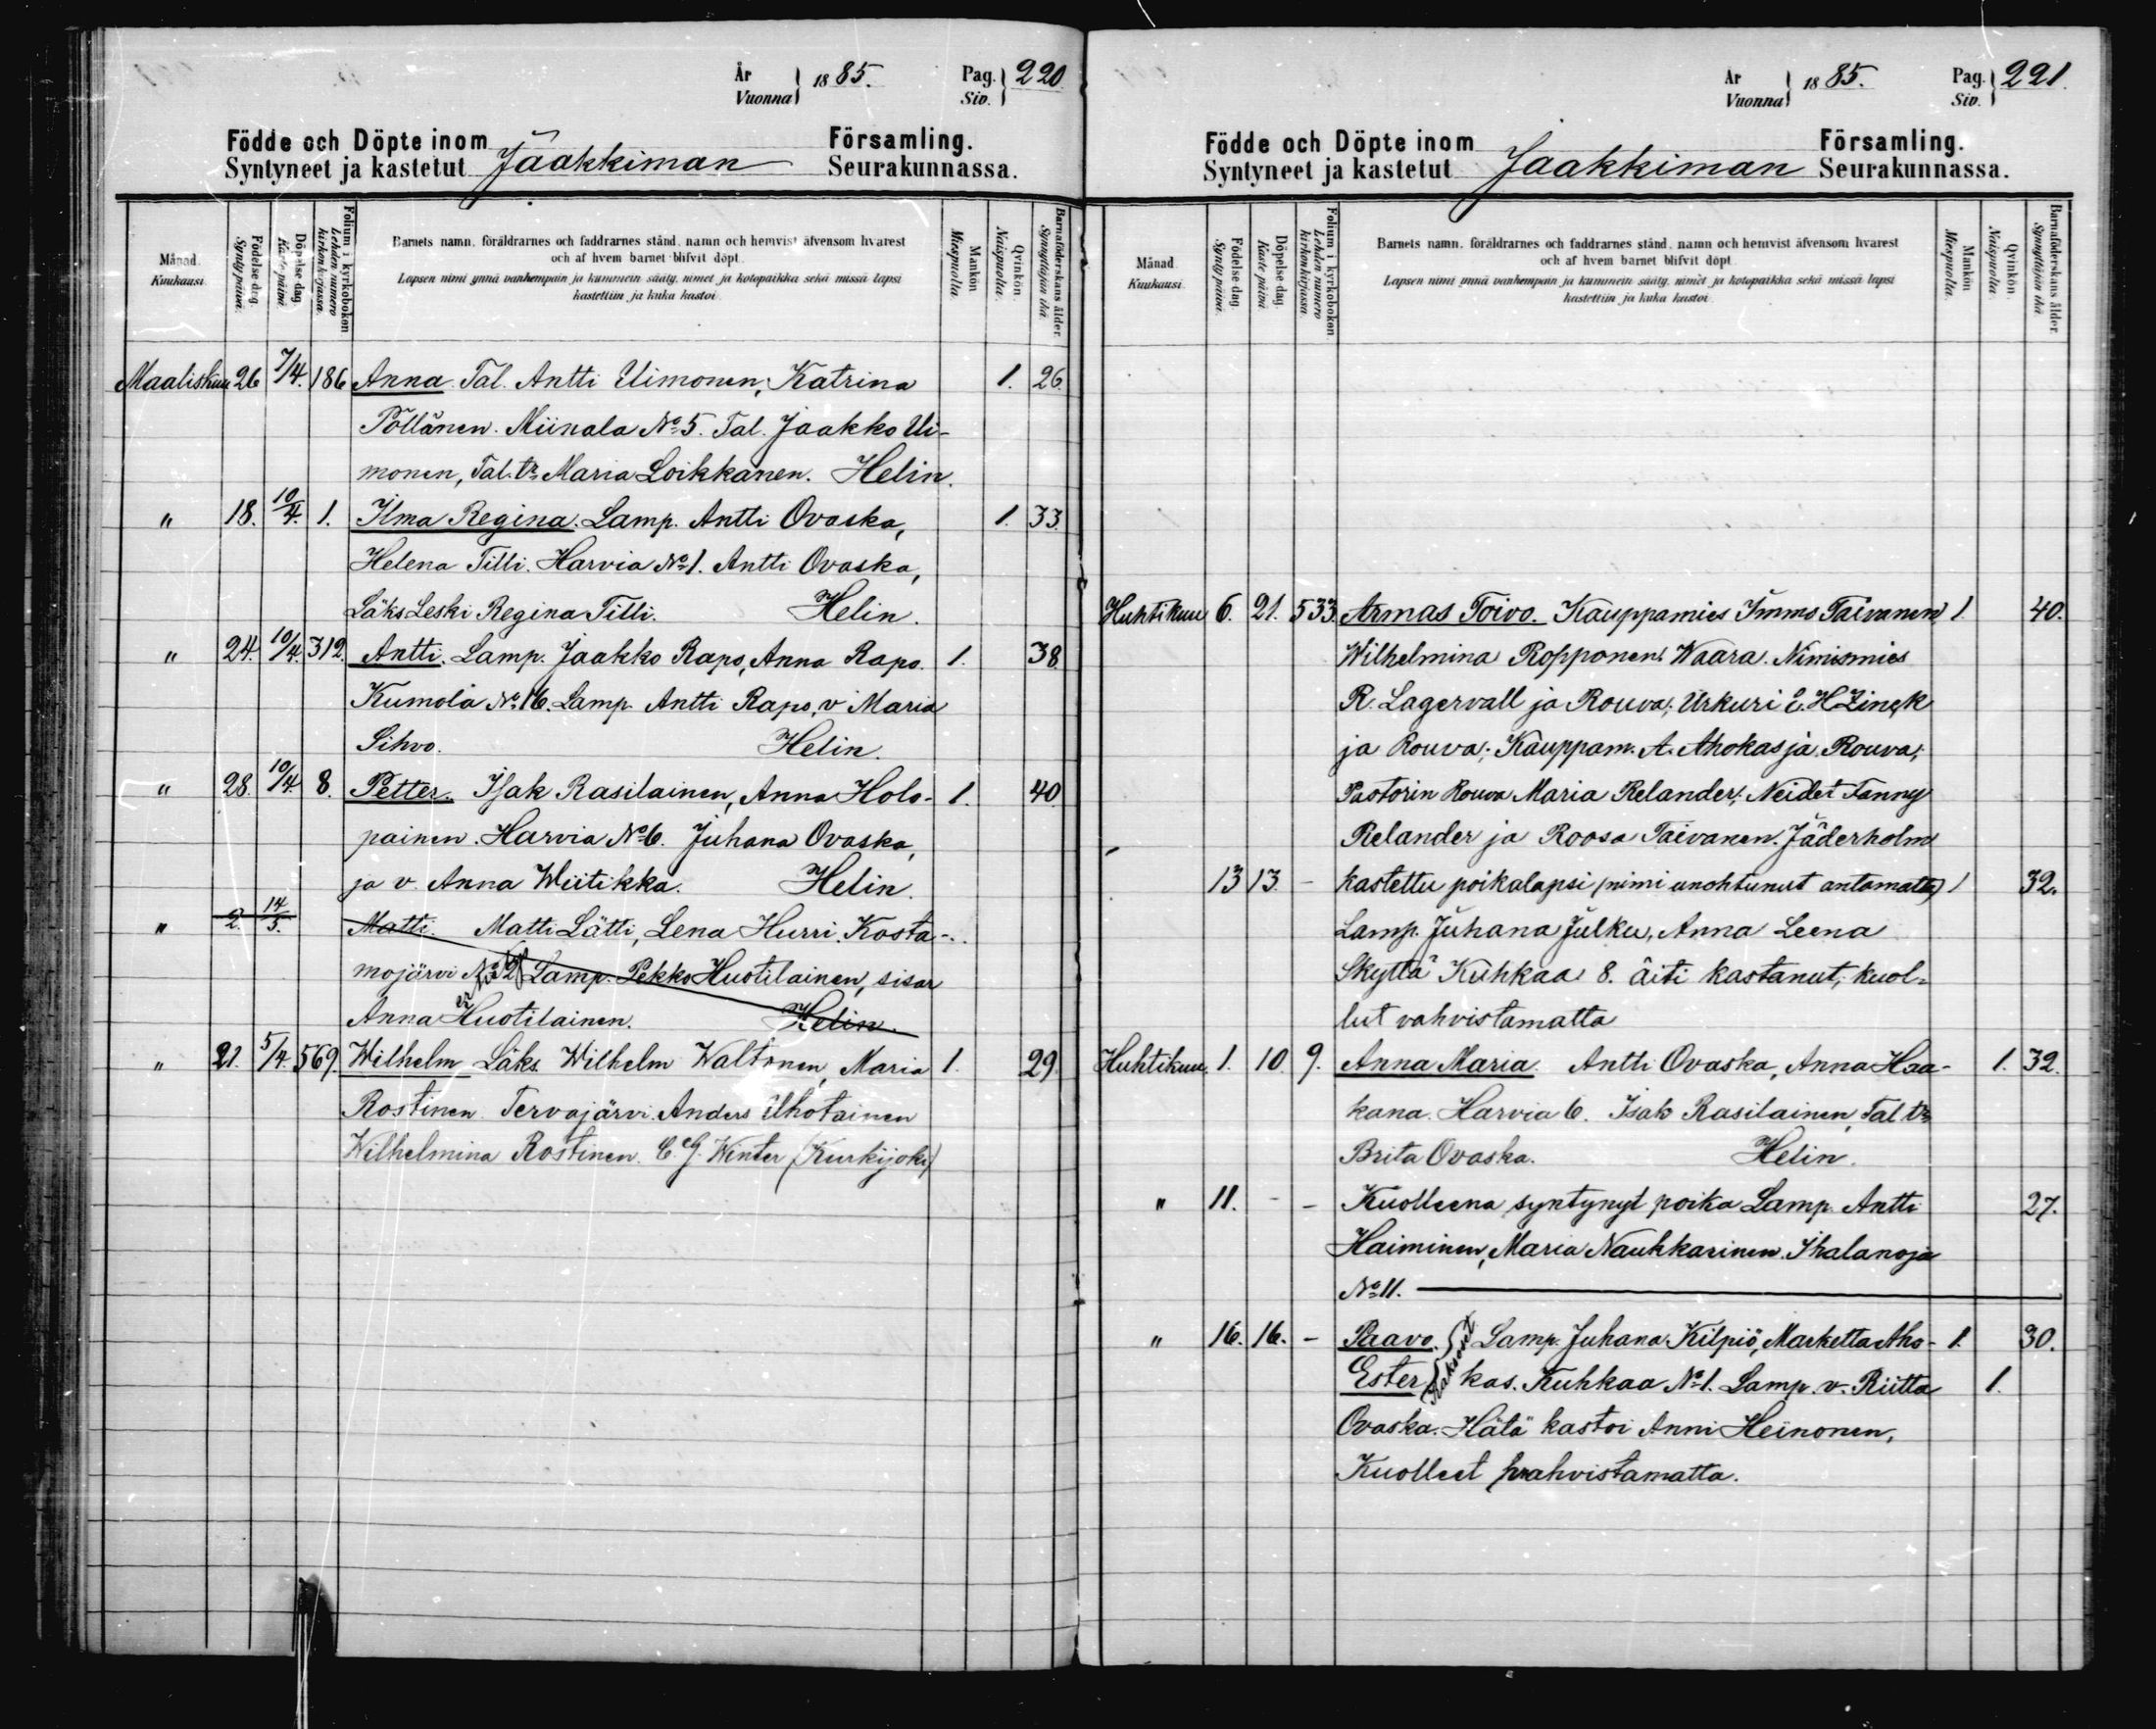 År
Vuonna 1885.
Pag.
Siv. 220
Födde och Döpte inom Församling.
Syntyneet ja kastetut Jaakkiman Seurakunnassa.
Månad. Kuukausi.
Födelse dag. Synty päivä.
Döpelse dag. Kaste päivä.
Folium i kyrkoboken Lehden numero kirkonkirjassa.
Barnets namn, föräldrarnes och faddrarnes stånd, namn och hemvist äfvensom hvarest
och af hvem barnet blifvit döpt.
Lapsen nimi ynnä vanhempain ja kummein sääty, nimet ja kotopaikka sekä missä lapsi
kastettiin ja kuka kastoi.
Mankön Miespuolia.
Qvinkön. Naispuolia.
Barnaföderskans ålder. Synnyttäjän ikä.
Maaliskuu 26 7/4. 186 Anna. Tal. Antti Uimonen, Katrina 1. 26.
Pöllänen. Miinala No 5. Tal. Jaakko Ui-
monen, Tal. tr Maria Loikkanen. Helin.
" 18. 10/4. 1. Ilma Regina. Lamp. Antti Ovaska, 1. 33.
Helena Tilli. Harvia No 1. Antti Ovaska,
Läks Leski Regina Tilli. Helin.
" 24. 10/4. 312. Antti. Lamp. Jaakko Rapo, Anna Rapo. 1. 38
Kumola No 16. Lamp. Antti Rapo, v Maria
Sihvo. Helin.
" 28. 10/4. 8. Petter. Isak Rasilainen, Anna Holo- 1. 40
painen. Harvia No 6. Juhana Ovaska,
ja v. Anna Wiitikka. Helin.
" 2. 14/5. Matti. Matti Lätti, Lena Hurri. Kosta-
mojärvi No 32 Lamp. Pekko Huotilainen, sisar
Anna Huotilainen. Helin.
" 21. 5/4. 569. Wilhelm Läks. Wilhelm Waltonen, Maria 1. 29.
Rostinen. Tervajärvi. Anders Uhotainen
Wilhelmina Rostinen. C. G. Winter (Kurkijoki)
År
Vuonna 1885.
Pag.
Siv. 221.
Födde och Döpte inom Församling.
Syntyneet ja kastetut Jaakkiman Seurakunnassa.
Månad. Kuukausi.
Födelse dag. Synty päivä.
Döpelse dag. Kaste päivä.
Folium i kyrkoboken Lehden numero kirkonkirjassa.
Barnets namn, föräldrarnes och faddrarnes stånd, namn och hemvist äfvensom hvarest
och af hvem barnet blifvit döpt.
Lapsen nimi ynnä vanhempain ja kummein sääty, nimet ja kotopaikka sekä missä lapsi
kastettiin ja kuka kastoi.
Mankön Miespuolia.
Qvinkön. Naispuolia.
Barnaföderskans ålder. Synnyttäjän ikä.
Huhtikuu 6. 21. 533. Armas Toivo. Kauppamies Immo Taivanen 1. 40.
Wilhelmina Ropponen. Waara. Nimismies
R. Lagervall ja Rouva; Urkuri E. H Zinck
ja Rouva; Kauppam. A. Ahokas ja Rouva;
Pastorin Rouva Maria Relander; Neidet Fanny
Relander ja Roosa Taivanen. Jäderholm
13 13. - kastettu poikalapsi (nimi unohtunut antamatta) 1 32.
Lamp. Juhana Julku, Anna Leena
Skyttä Kuhkaa 8. äiti kastanut; kuol-
lut vahvistamatta
Huhtikuu. 1. 10. 9. Anna Maria. Antti Ovaska, Anna Haa- 1. 32.
kana. Harvia 6. Isak Rasilainen, Tal tr
Brita Ovaska. Helin.
" 11. - - Kuolleena syntynyt poika Lamp. Antti 27.
Haiminen, Maria Naukkarinen. Ihalanoja
No 11.
" 16. 16. - Paavo. Lamp. Juhana Kilpiö, Marketta Aho- 1. 30.
Ester kaksoset kas. Kuhkaa No 1. Lamp. v. Riitta 1.
Ovaska. Hätä kastoi Anni Heinonen,
Kuolleet vahvistamatta.